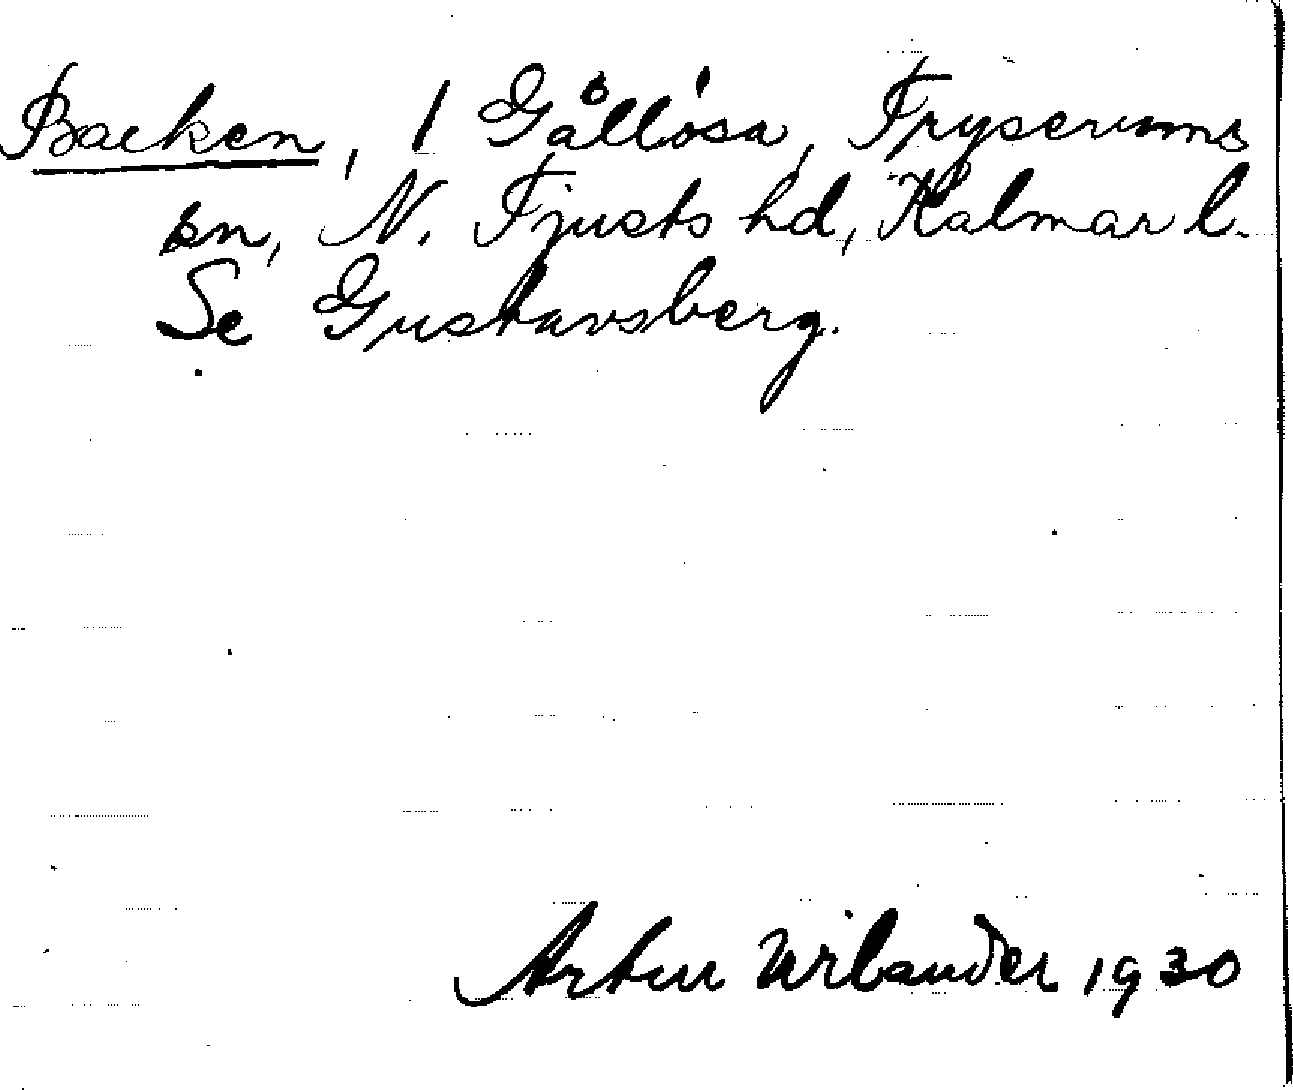 Backen, 1 Gållösa, Tryserums
sn, N. Tjusts hd, Kalmar l.
Se Gustavsberg.
Artur Wilander 1930